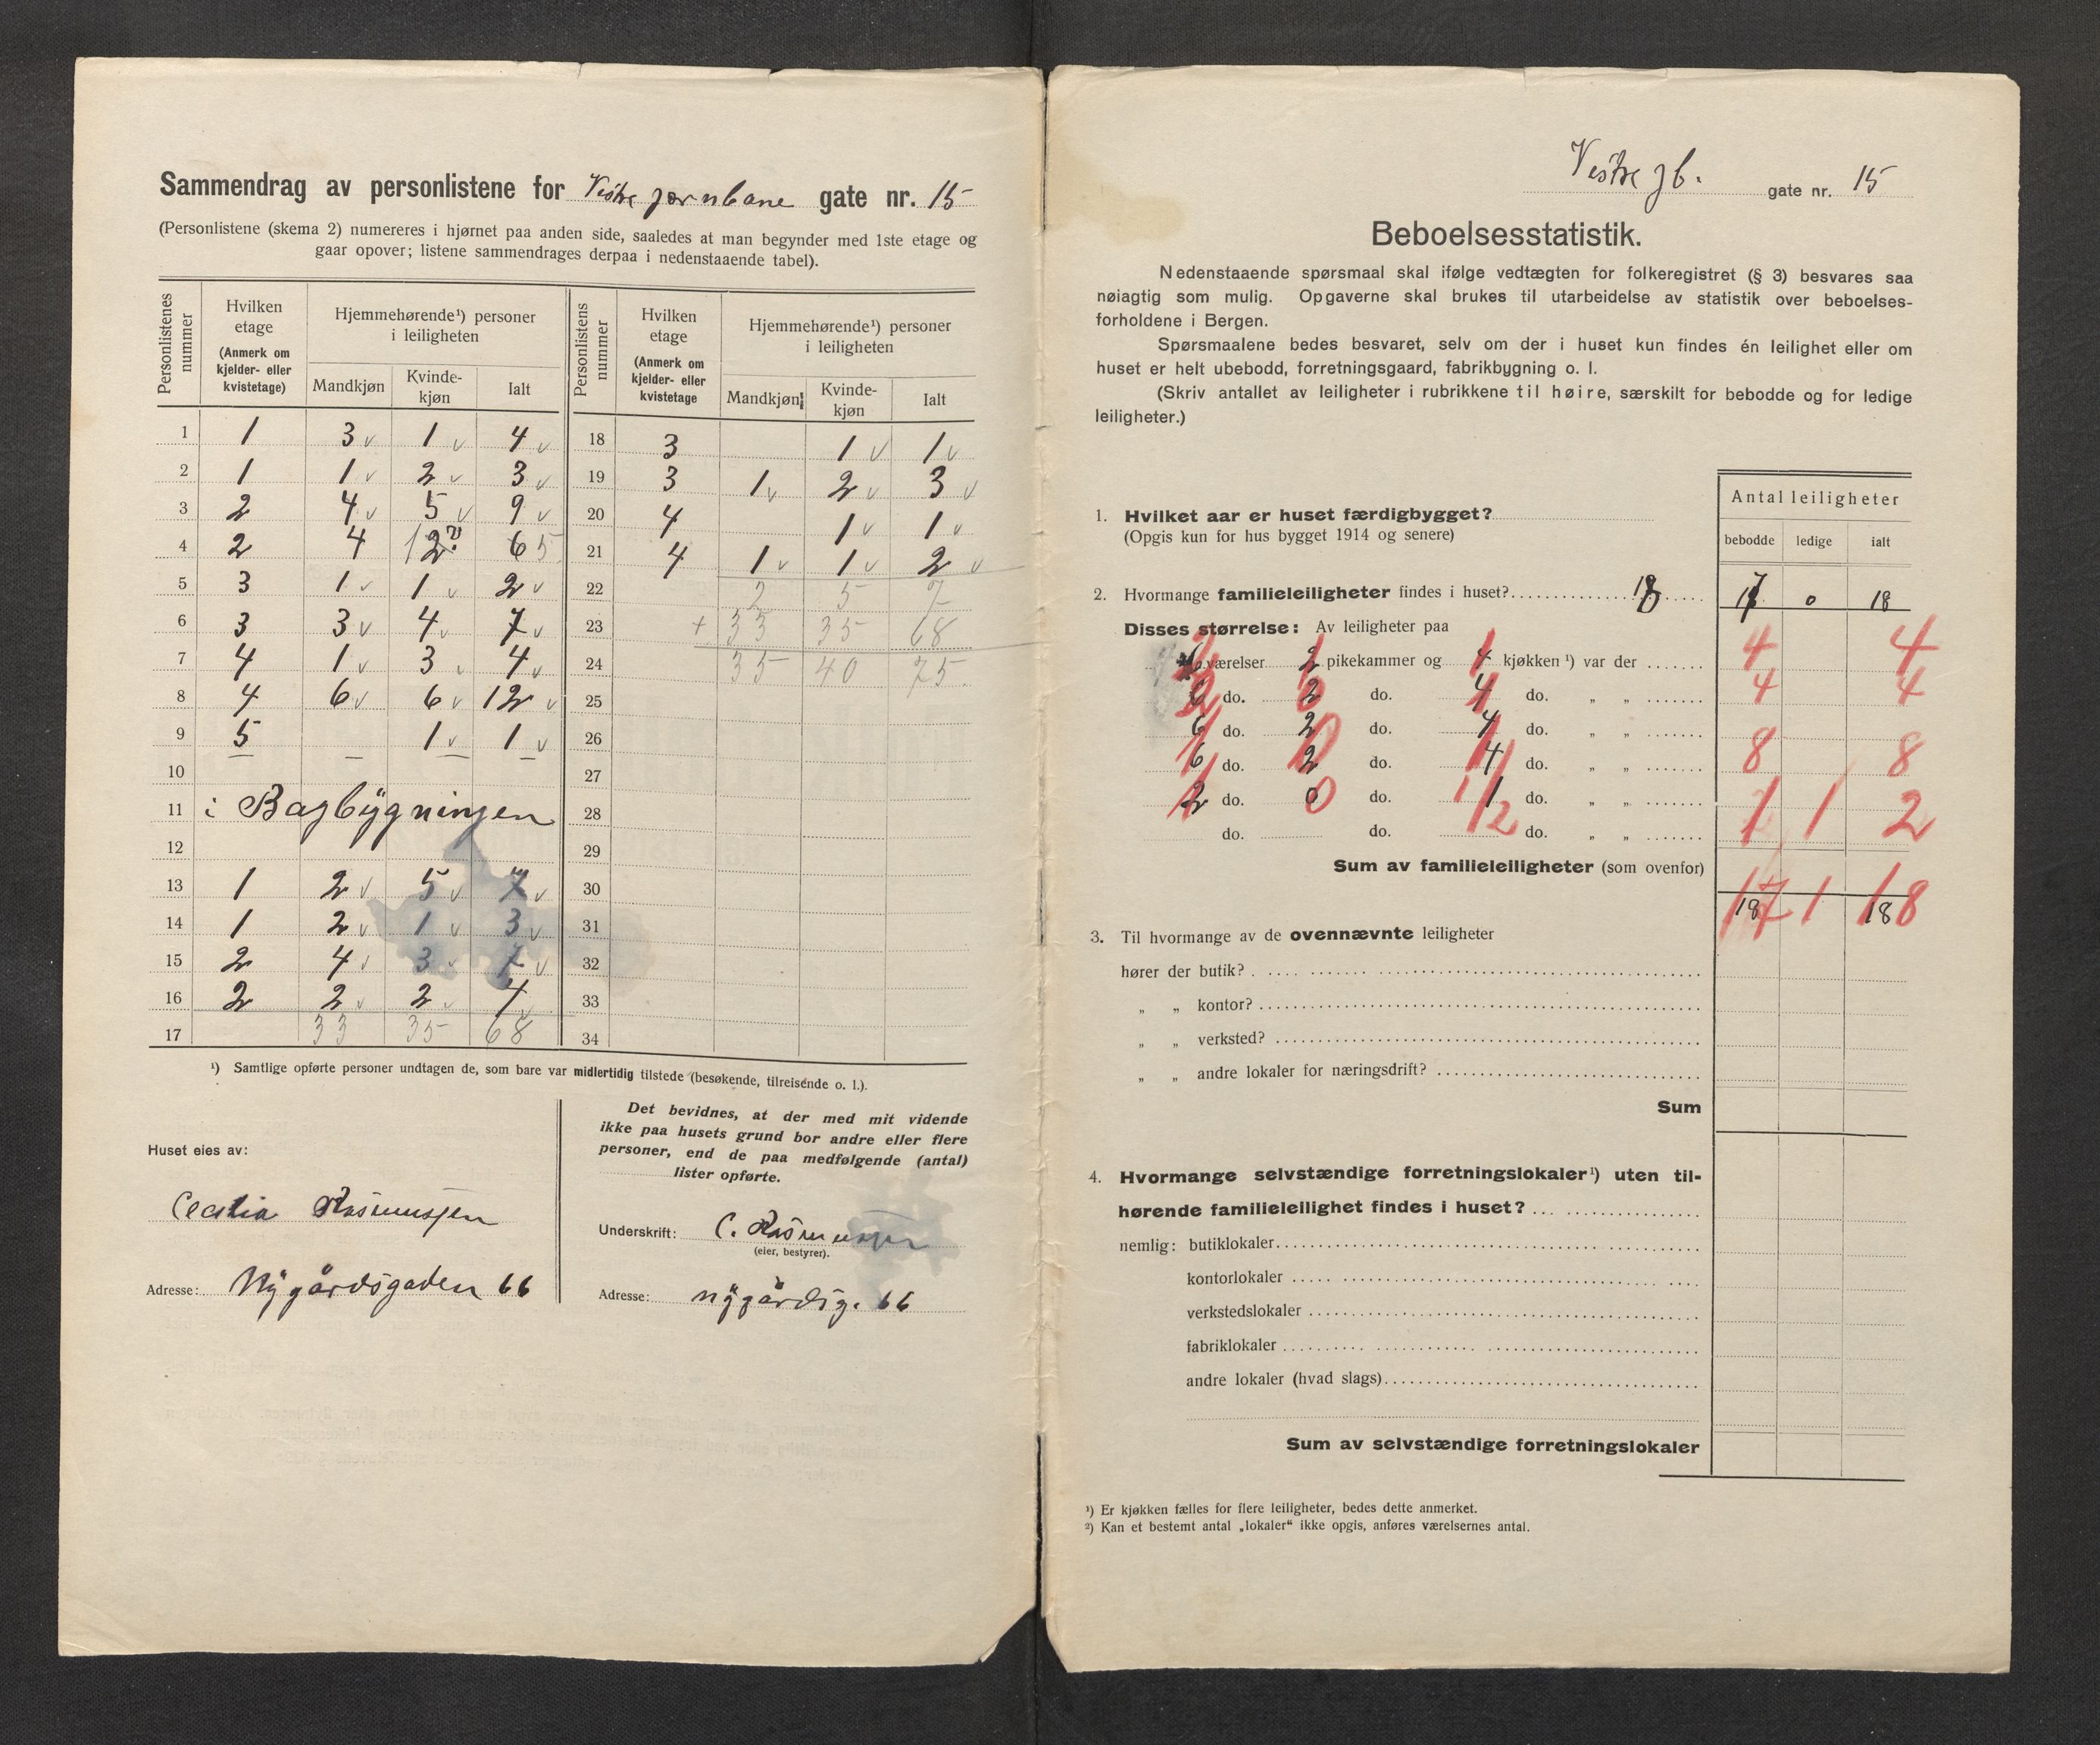 Sammendrag av personlistene for Vestre jernbane gate nr. 15
(Personlistene (skema 2) numereres i hjørnet paa anden side, saaledes at man begynder med 1ste etage og
gaar opover; listene sammendrages derpaa i nedenstaaende tabel).
Personlistenes nummer | Hvilken etage (Anmerk om kjelder- eller kvistetage) | Hjemmehørende¹) personer i leiligheten
Mandkjøn | Kvinde-kjøn | Ialt
1 | 1 | 3 v | 1 v | 4 v
2 | 1 | 1 v | 2 v | 3 v
3 | 2 | 4 v | 5 v | 9 v
4 | 2 | 4 | 1 2 ? | 6 5
5 | 3 | 1 v | 1 v | 2 v
6 | 3 | 3 v | 4 v | 7 v
7 | 4 | 1 v | 3 v | 4 v
8 | 4 | 6 v | 6 v | 12 v
9 | 5 | – | 1 v | 1 v
10
11 i Bagbÿgningen
12
13 | 1 | 2 v | 5 v | 7 v
14 | 1 | 2 v | 1 v | 3 v
15 | 2 | 4 v | 3 v | 7 v
16 | 2 | 2 v | 2 v | 4 v
17 | 33 | 35 | 68
Personlistens nummer | Hvilken etage (Anmerk om kjelder- eller kvistetage | Hjemmehørende¹) personer i leiligheten
Mandkjøn | Kvinde-kjøn | Ialt
18 | 3 | | 1 v | 1 v
19 | 3 | 1 v | 2 v | 3 v
20 | 4 | | 1 v | 1 v
21 | 4 | 1 v | 1 v | 2 v
22 | 2 | 5 | 7
23 | + 33 | 35 | 68
24 | 35 | 40 | 75.
25
26
27
28
29
30
31
32
33
34
¹) Samtlige opførte personer undtagen de, som bare var midlertidig tilstede (besøkende, tilreisende o. l.).
Huset eies av:
Cecilia Rasmussen
Adresse: Nÿgårdsgaden 66
Det bevidnes, at der med mit vidende
ikke paa husets grund bor andre eller flere
personer, end de paa medfølgende (antal)
lister opførte.
Underskrift: C. Rasmussen
(eier, bestyrer).
Adresse: nÿgårdsg. 66
Vestre jb. gate nr. 15
Beboelsesstatistik.
Nedenstaaende spørsmaal skal ifølge vedtægten for folkeregistret (§ 3) besvares saa
nøiagtig som mulig. Opgaverne skal brukes til utarbeidelse av statistik over beboelses-
forholdene i Bergen.
Spørsmaalene bedes besvaret, selv om der i huset kun findes én leilighet eller om
huset er helt ubebodd, forretningsgaard, fabrikbygning o. l.
(Skriv antallet av leiligheter i rubrikkene til høire, særskilt for bebodde og for ledige
leiligheter.)
Antal leiligheter
bebodde | ledige | ialt
1. Hvilket aar er huset færdigbygget?
(Opgis kun for hus bygget 1914 og senere)
2. Hvormange familieleiligheter findes i huset? 18 | 17 | 0 | 18
Disses størrelse: Av leiligheter paa
2 værelser 1 pikekammer og 1 kjøkken ¹) var der | 4 | | 4
6 2 do. 2 0 do. 4 1 do. „ „ | 4 | | 4
6 1 do. 2 0 do. 4 1 do. „ „
6 1 do. 2 0 do. 4 1 do. „ „ | 8 | | 8
2 1 do. 0 0 do. 1 1/2 do. „ „ | 1 | 1 | 2
do. do. do. „ „
Sum av familieleiligheter (som ovenfor) 18 17 | 1 | 18 18
3. Til hvormange av de ovennævnte leiligheter
hører der butik?
„ „ kontor?
„ „ verksted?
„ „ andre lokaler for næringsdrift?
Sum
4. Hvormange selvstændige forretningslokaler¹) uten til-
hørende familieleilighet findes i huset?
nemlig: butiklokaler
kontorlokaler
verkstedslokaler
fabriklokaler
andre lokaler (hvad slags)
Sum av selvstændige forretningslokaler
¹) Er kjøkken fælles for flere leiligheter, bedes dette anmerket.
²) Kan et bestemt antal „lokaler“ ikke opgis, anføres værelsernes antal.